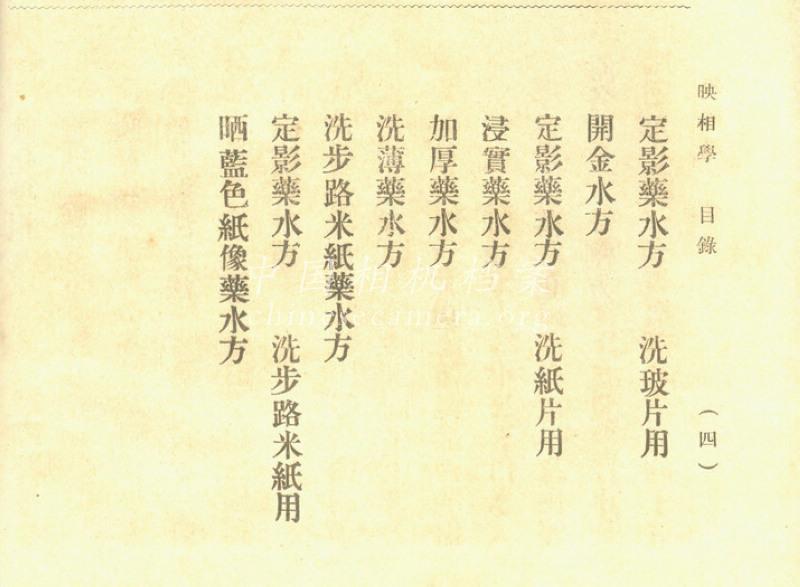 映相學 目錄 （四）
定影藥水方 洗玻片用
開金水方
定影藥水方 洗紙片用
浸實藥水方
加厚藥水方
洗薄藥水方
洗步路米紙藥水方
定影藥水方 洗步路米紙用
晒藍色紙像藥水方
中国相机档案
chinesecamera.org